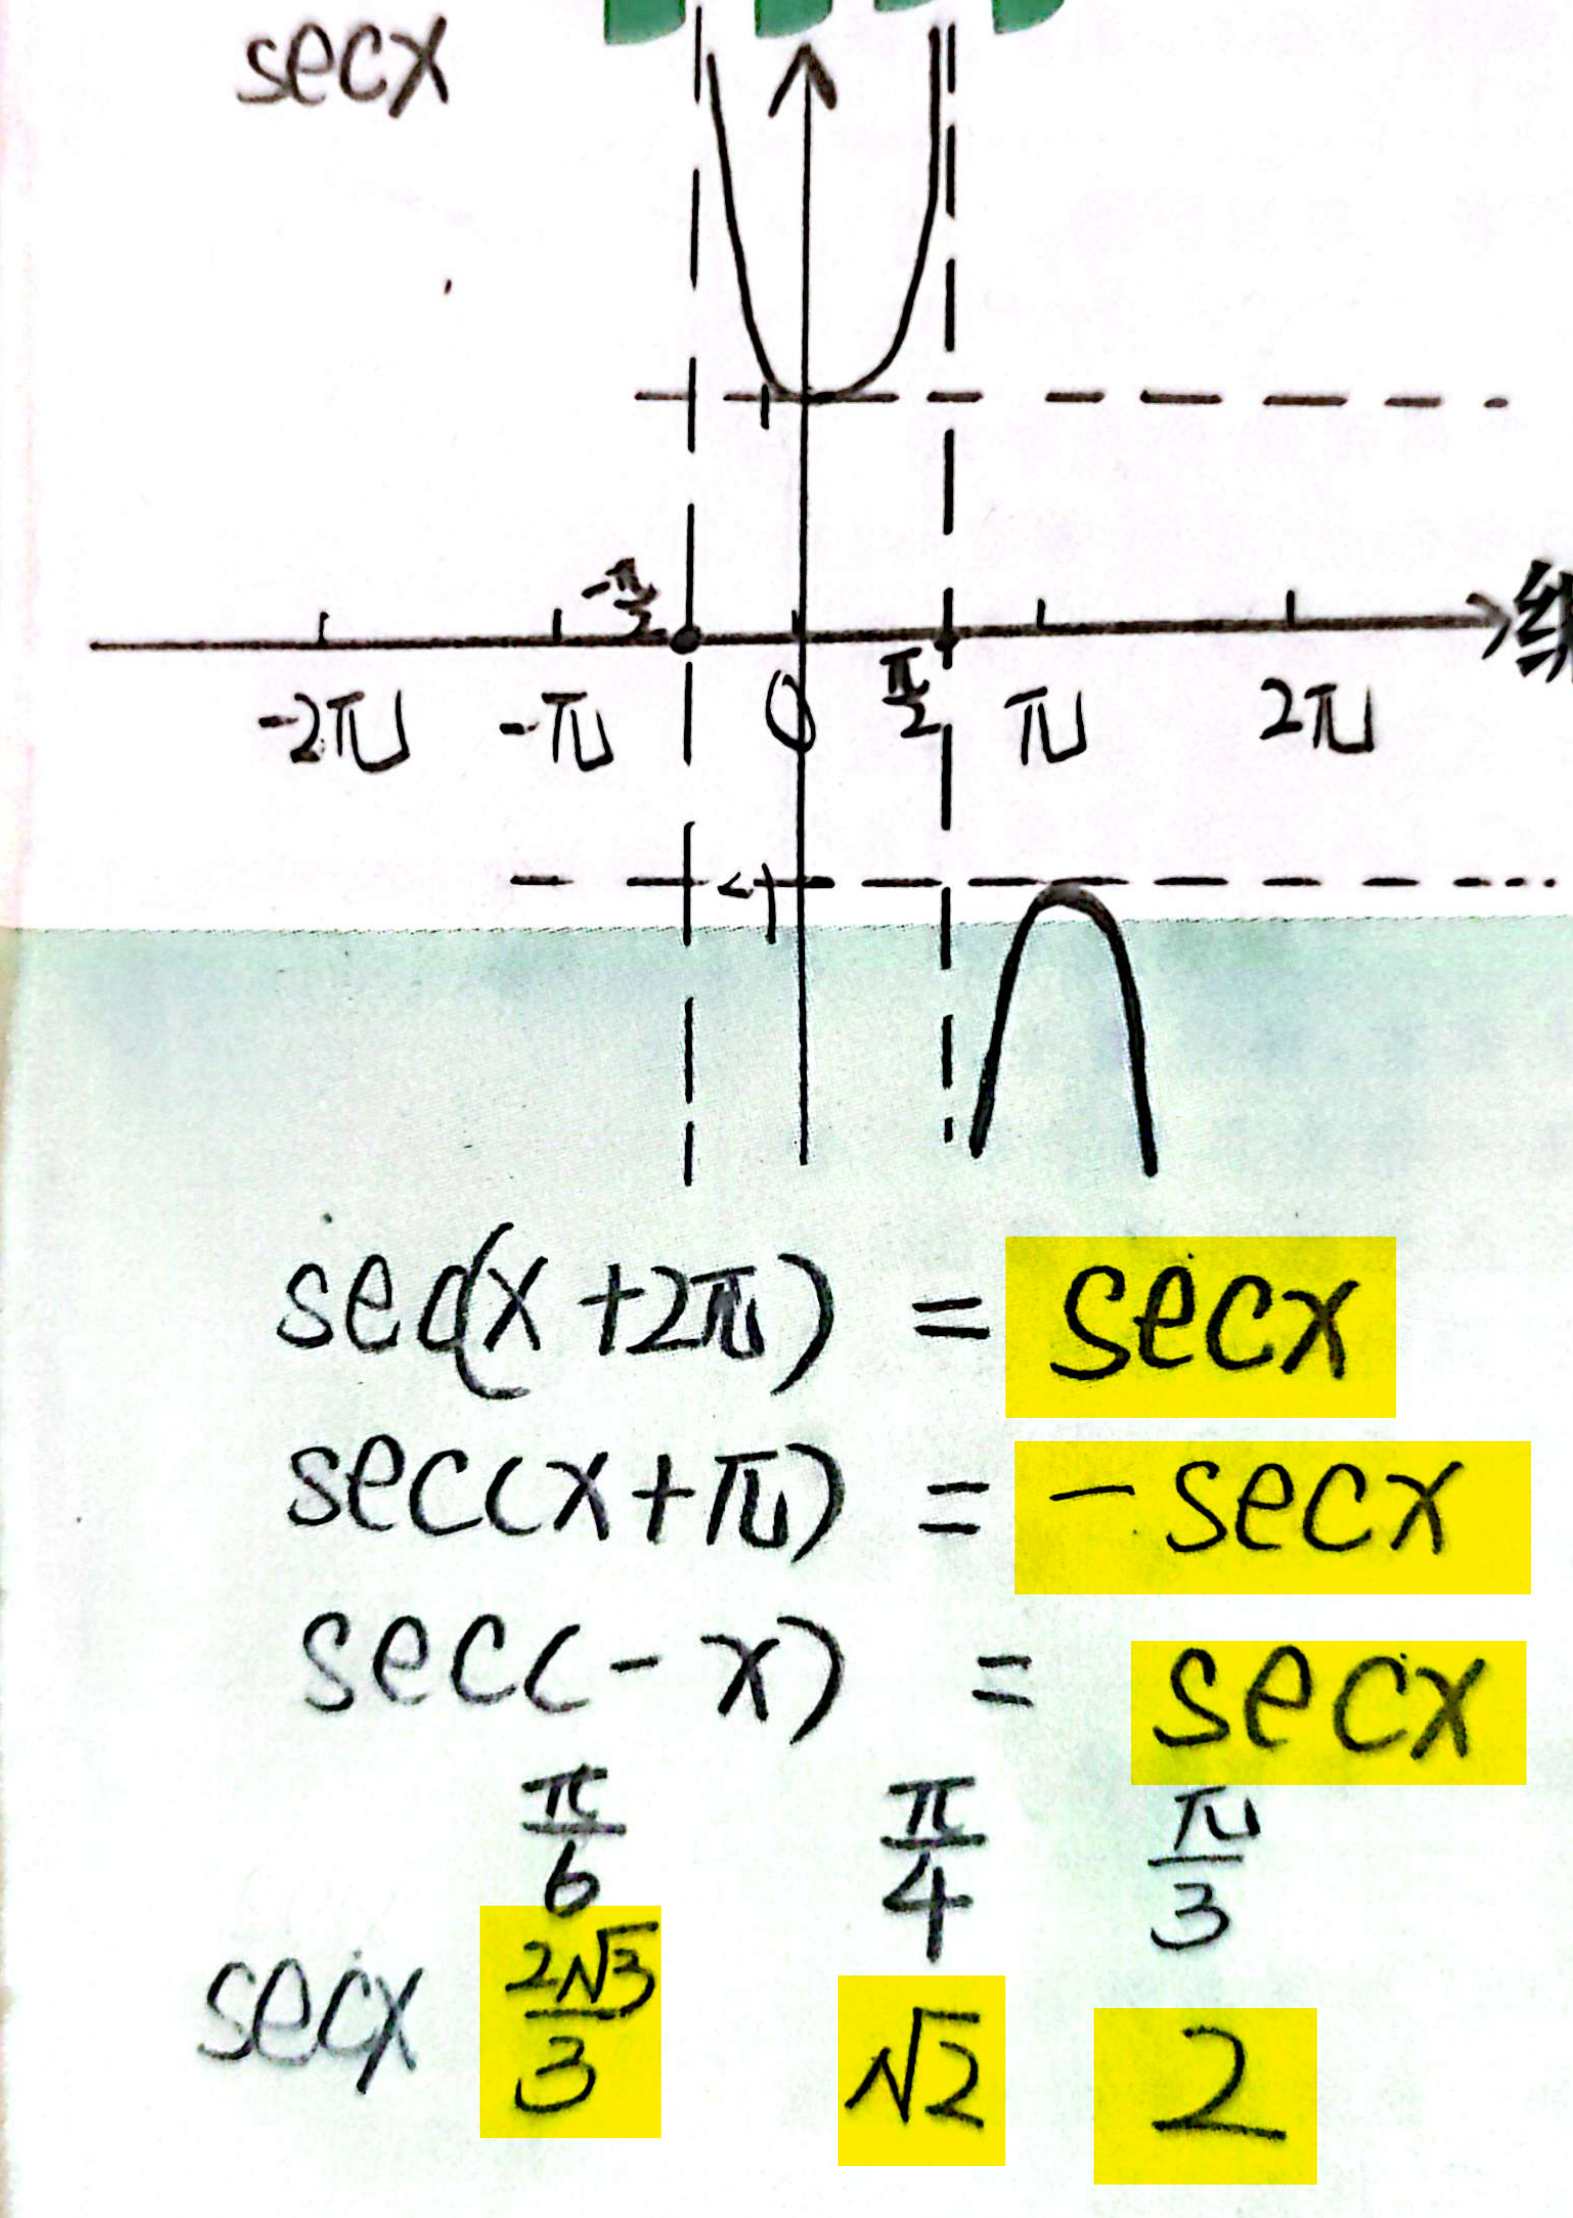 secx
1
-π/2
-2π -π 0 π/2 π 2π
-1
sec(x+2π) = secx
sec(x+π) = -secx
sec(-x) = secx
π/6 π/4 π/3
secx 2√3/3 √2 2